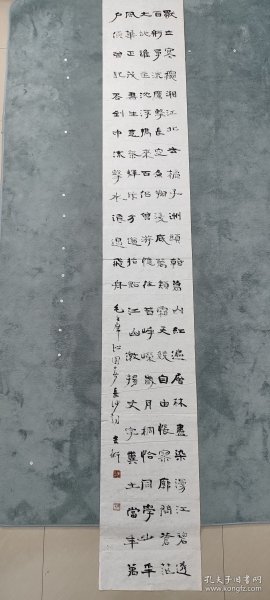 獨立寒秋湘江北去橘子洲頭看萬山紅遍層林盡染漫江碧透
百舸爭流鷹擊長空魚翔淺底萬類霜天競自由悵寥廓問蒼茫
大地誰主沉浮攜來百侶曾游憶往昔崢嶸歲月稠恰同學少年
風華正茂書生意氣揮斥方遒指點江山激揚文字糞土當年萬
戶侯曾記否到中流擊水浪遏飛舟 毛主席沁園春長沙詞
孔夫子旧书网